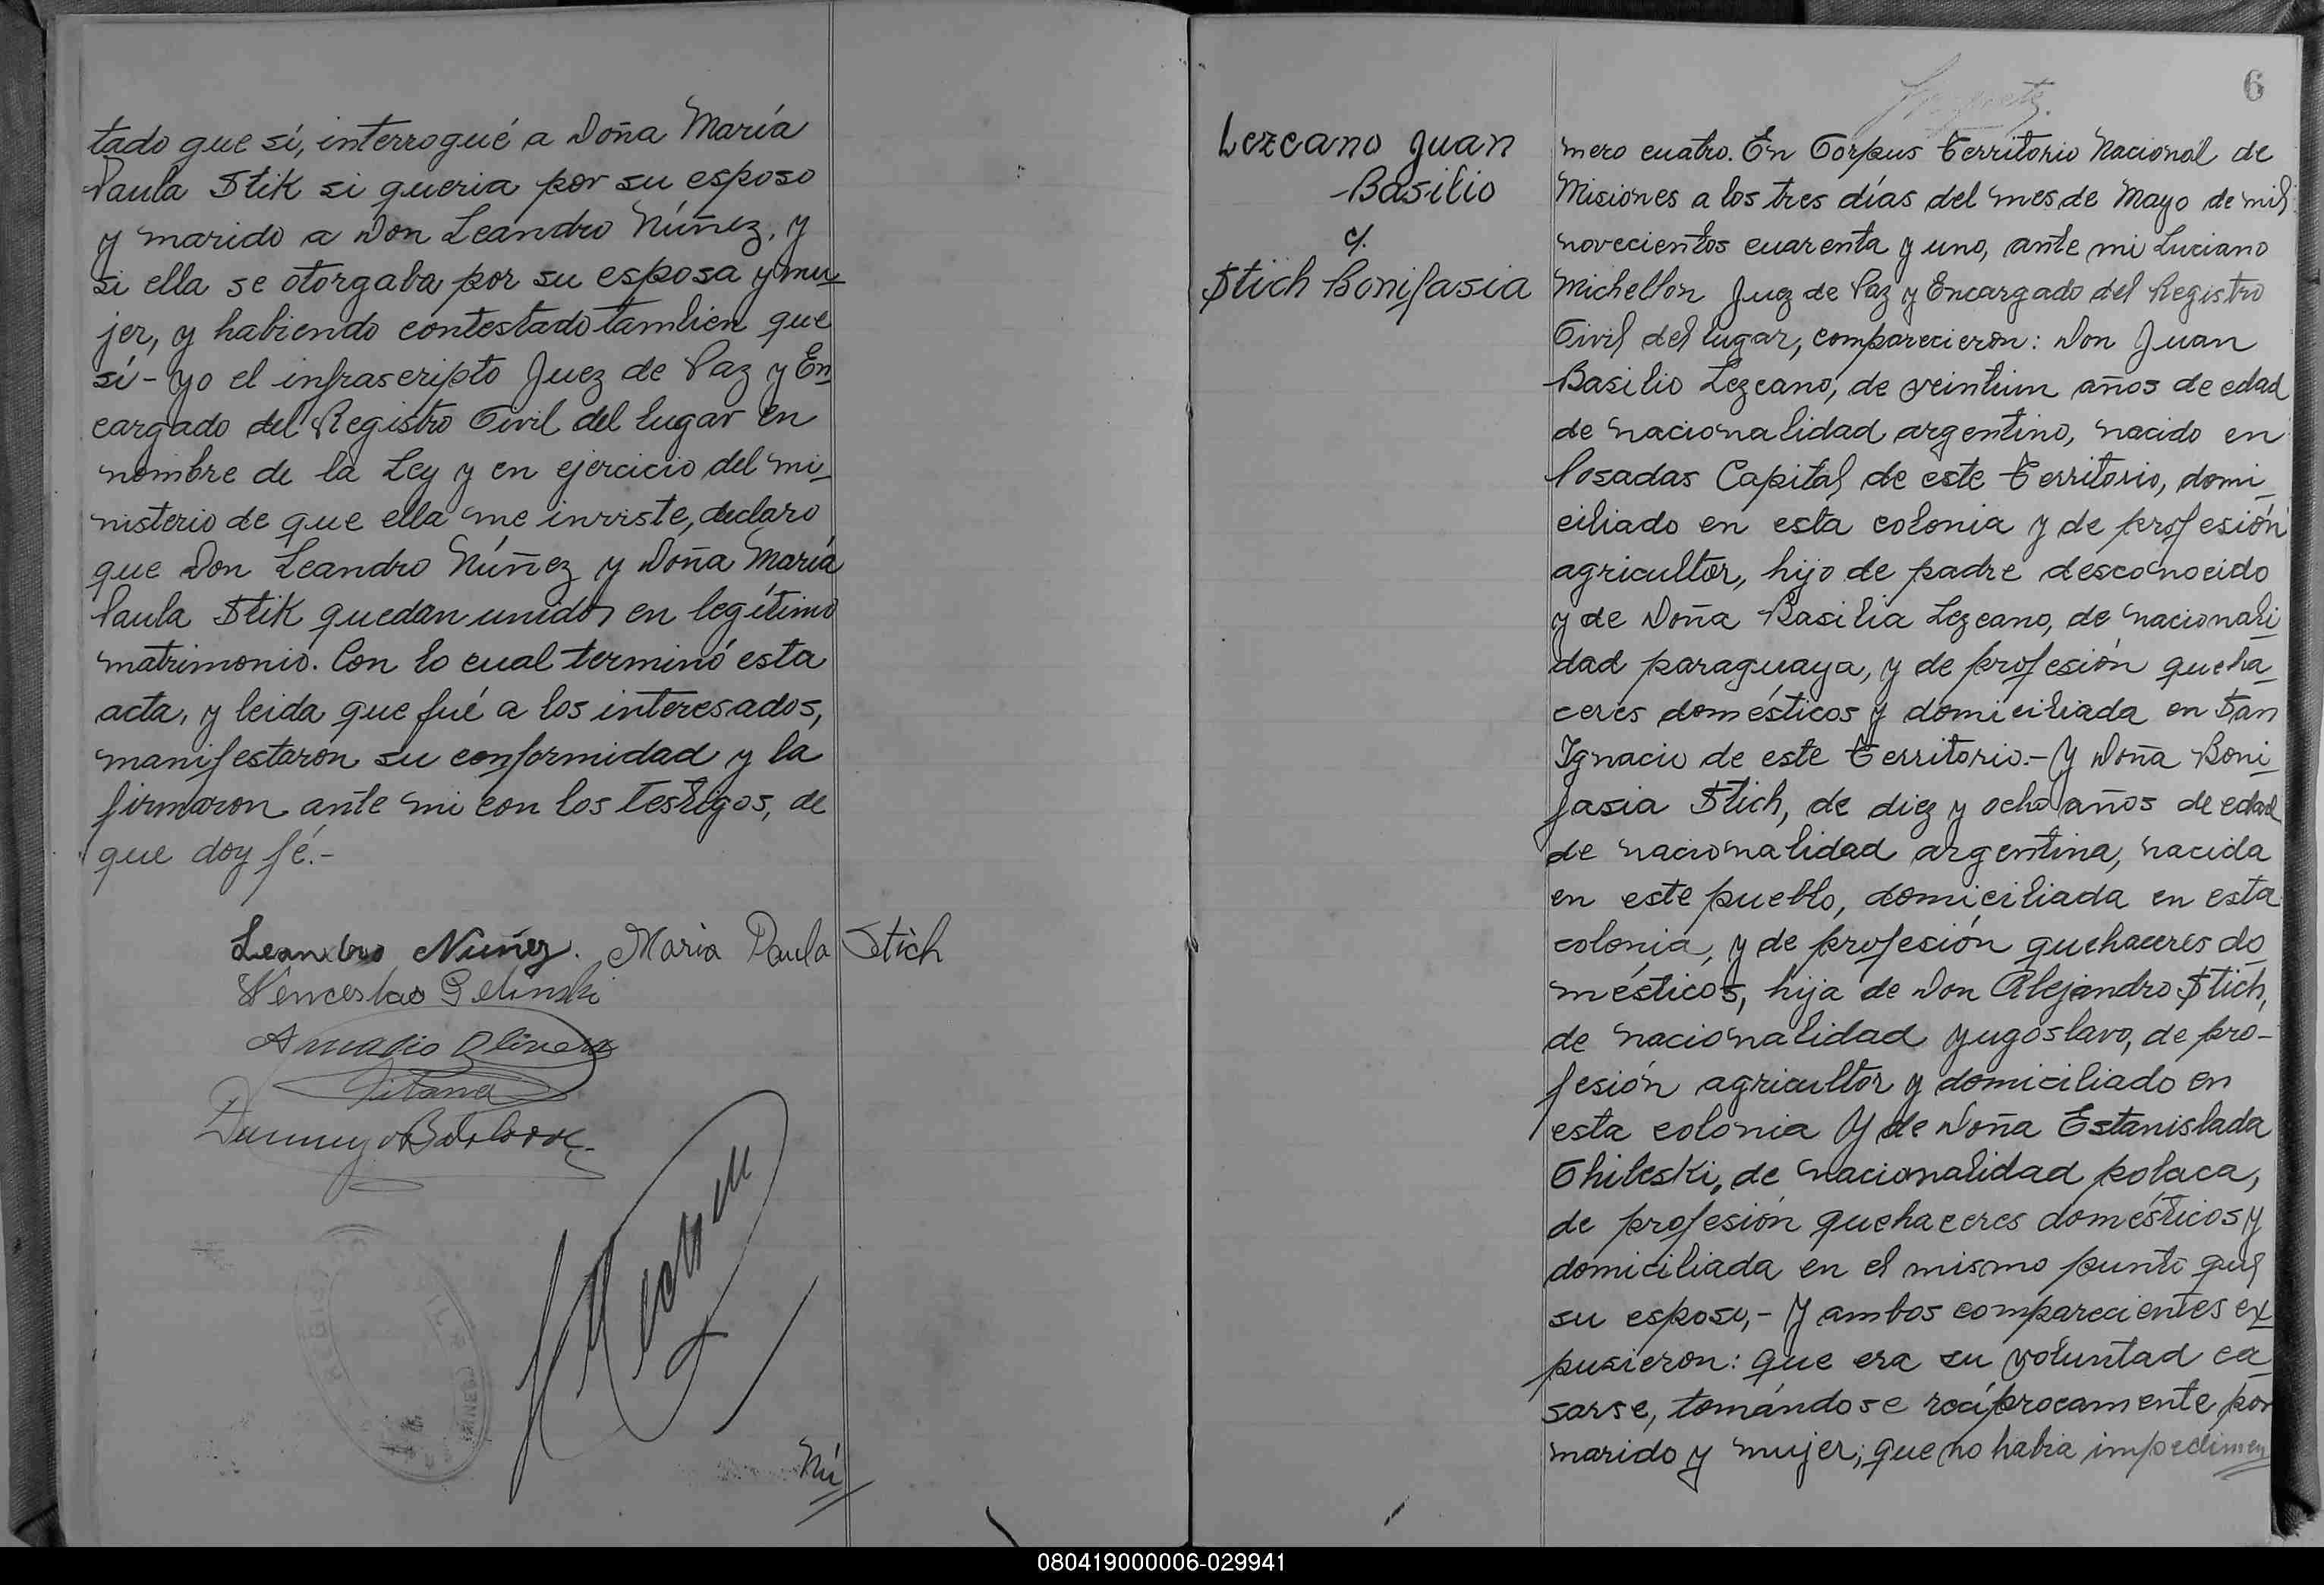 tado que sí, interrogué a Doña María
Paula Stik si queria por su esposo
y marido a Don Leandro Núñez, y
si ella se otorgaba por su esposa y mu-
jer, y habiendo contestado tambien que
sí - Yo el infrascripto Juez de Paz y En-
cargado del Registro Civil del lugar en
nombre de la Ley y en ejercicio del mi-
nisterio de que ella me inviste, declaro
que Don Leandro Núñez y Doña María
Paula Stik quedan unidos en legítimo
matrimonio. Con lo cual terminó esta
acta, y leida que fué a los interesados,
manifestaron su conformidad y la
firmaron ante mi con los testigos, de
que doy fé.-
Leandro Nuñez. Maria Paula Stich
Wenceslao
Amadio Olivera
Nú
6
Lezcano Juan
Basilio
c/.
Stich Bonifasia
mero cuatro. En Corpus Territorio Nacional de
Misiones a los tres días del mes de Mayo de mil
novecientos cuarenta y uno, ante mi Luciano
Michellon Juez de Paz y Encargado del Registro
Civil del lugar, comparecieron: Don Juan
Basilio Lezcano, de veintiun años de edad
de nacionalidad argentino, nacido en
Posadas Capital de este Territorio, domi-
ciliado en esta colonia y de profesión
agricultor, hijo de padre desconocido
y de Doña Basilia Lezcano, de nacionali-
dad paraguaya, y de profesión queha-
ceres domésticos y domiciliada en San
Ignacio de este Territorio.- Y Doña Boni-
fasia Stich, de diez y ocho años de edad
de nacionalidad argentina, nacida
en este pueblo, domiciliada en esta
colonia, y de profesión quehaceres do-
mésticos, hija de Don Alejandro Stich,
de nacionalidad yugoslavo, de pro-
fesión agricultor y domiciliado en
esta colonia Y de Doña Estanislada
Chileski, de nacionalidad polaca,
de profesión quehaceres domésticos y
domiciliada en el mismo punto que
su esposo,- Y ambos comparecientes ex-
pusieron: que era su voluntad ca-
sarse, tomándose recíprocamente por
marido y mujer; que no habia impedimen-
080419000006-029941